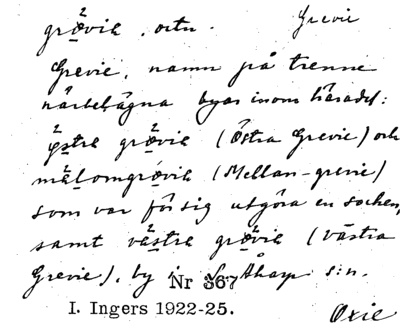 grøvia, ortn. Grevie
Grevie, namn på trenne
närbelägna byar inom häradet:
ø̨stra grøvia (Östra Grevie) och
mälomgrøvia (Mellan-grevie)
som var för sig utgöra en socken,
samt västra grøvia (Västra
Grevie), by i S. Åkarp s:n.
Nr 367
I. Ingers 1922-25.
Oxie